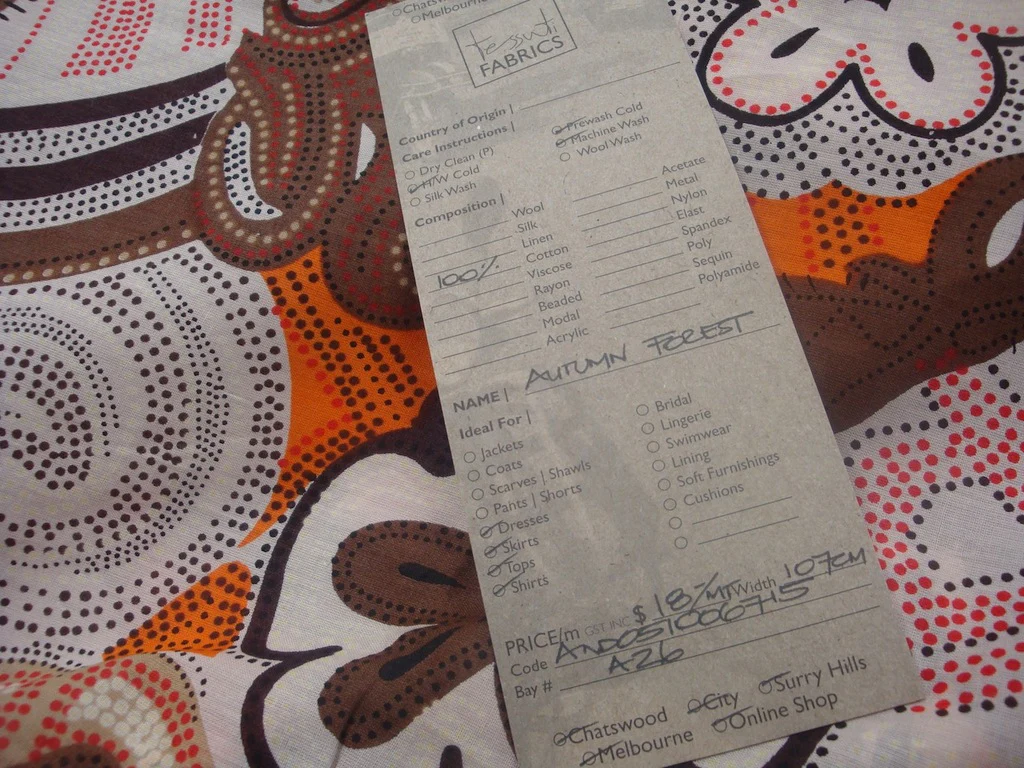 Chatswood
Melbourne
tessuti
FABRICS
Country of Origin |
Care Instructions |
Dry Clean (P)
H/W Cold
Silk Wash
Prewash Cold
Machine Wash
Wool Wash
Composition |
Wool
Silk
Linen
100% Cotton
Viscose
Rayon
Beaded
Modal
Acrylic
Acetate
Metal
Nylon
Elast
Spandex
Poly
Sequin
Polyamide
NAME | AUTUMN FOREST
Ideal For |
Jackets
Coats
Scarves | Shawls
Pants | Shorts
Dresses
Skirts
Tops
Shirts
Bridal
Lingerie
Swimwear
Lining
Soft Furnishings
Cushions
PRICE/m GST INC $ 18/MT Width 107CM
Code
Bay # A26
Chatswood City Surry Hills
Melbourne Online Shop